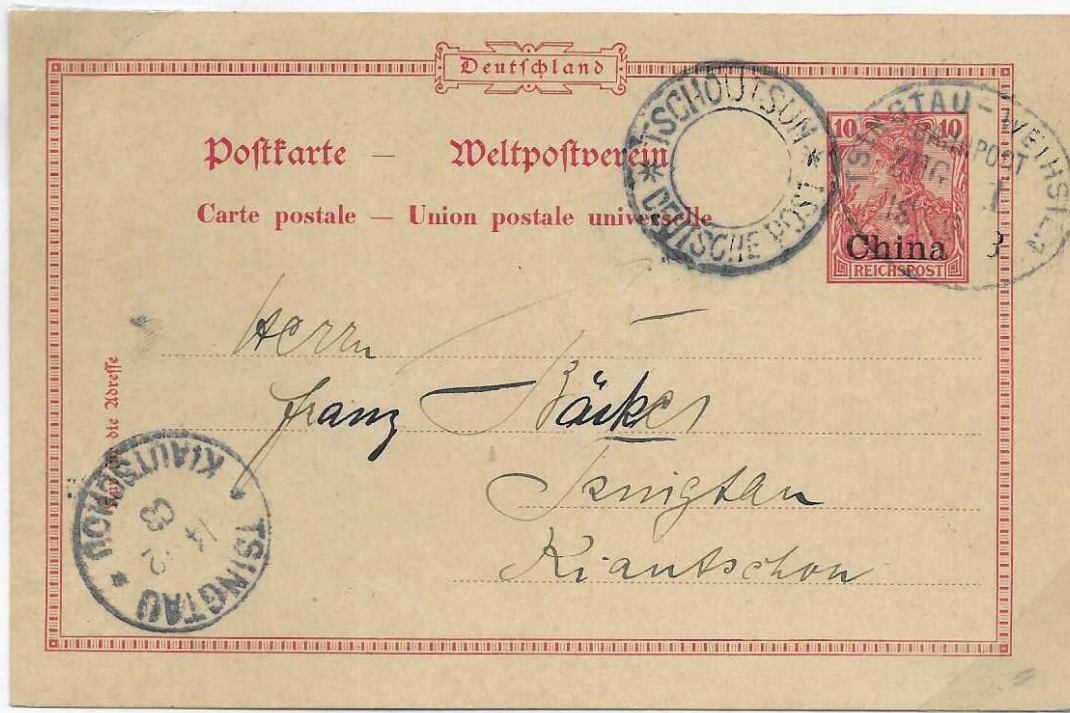 Deutschland
Postkarte — Weltpostverein
Carte postale — Union postale universelle
* TSCHOUTSUN *
DEUTSCHE POST
TSINGTAU-
BAHNPOST
ZUG 1
10 10
China
REICHSPOST
Herrn
Franz Bäcker
Tsingtau
Kiautschou
die Adresse
TSINGTAU
* KIAUTSCHOU *
14 12
03